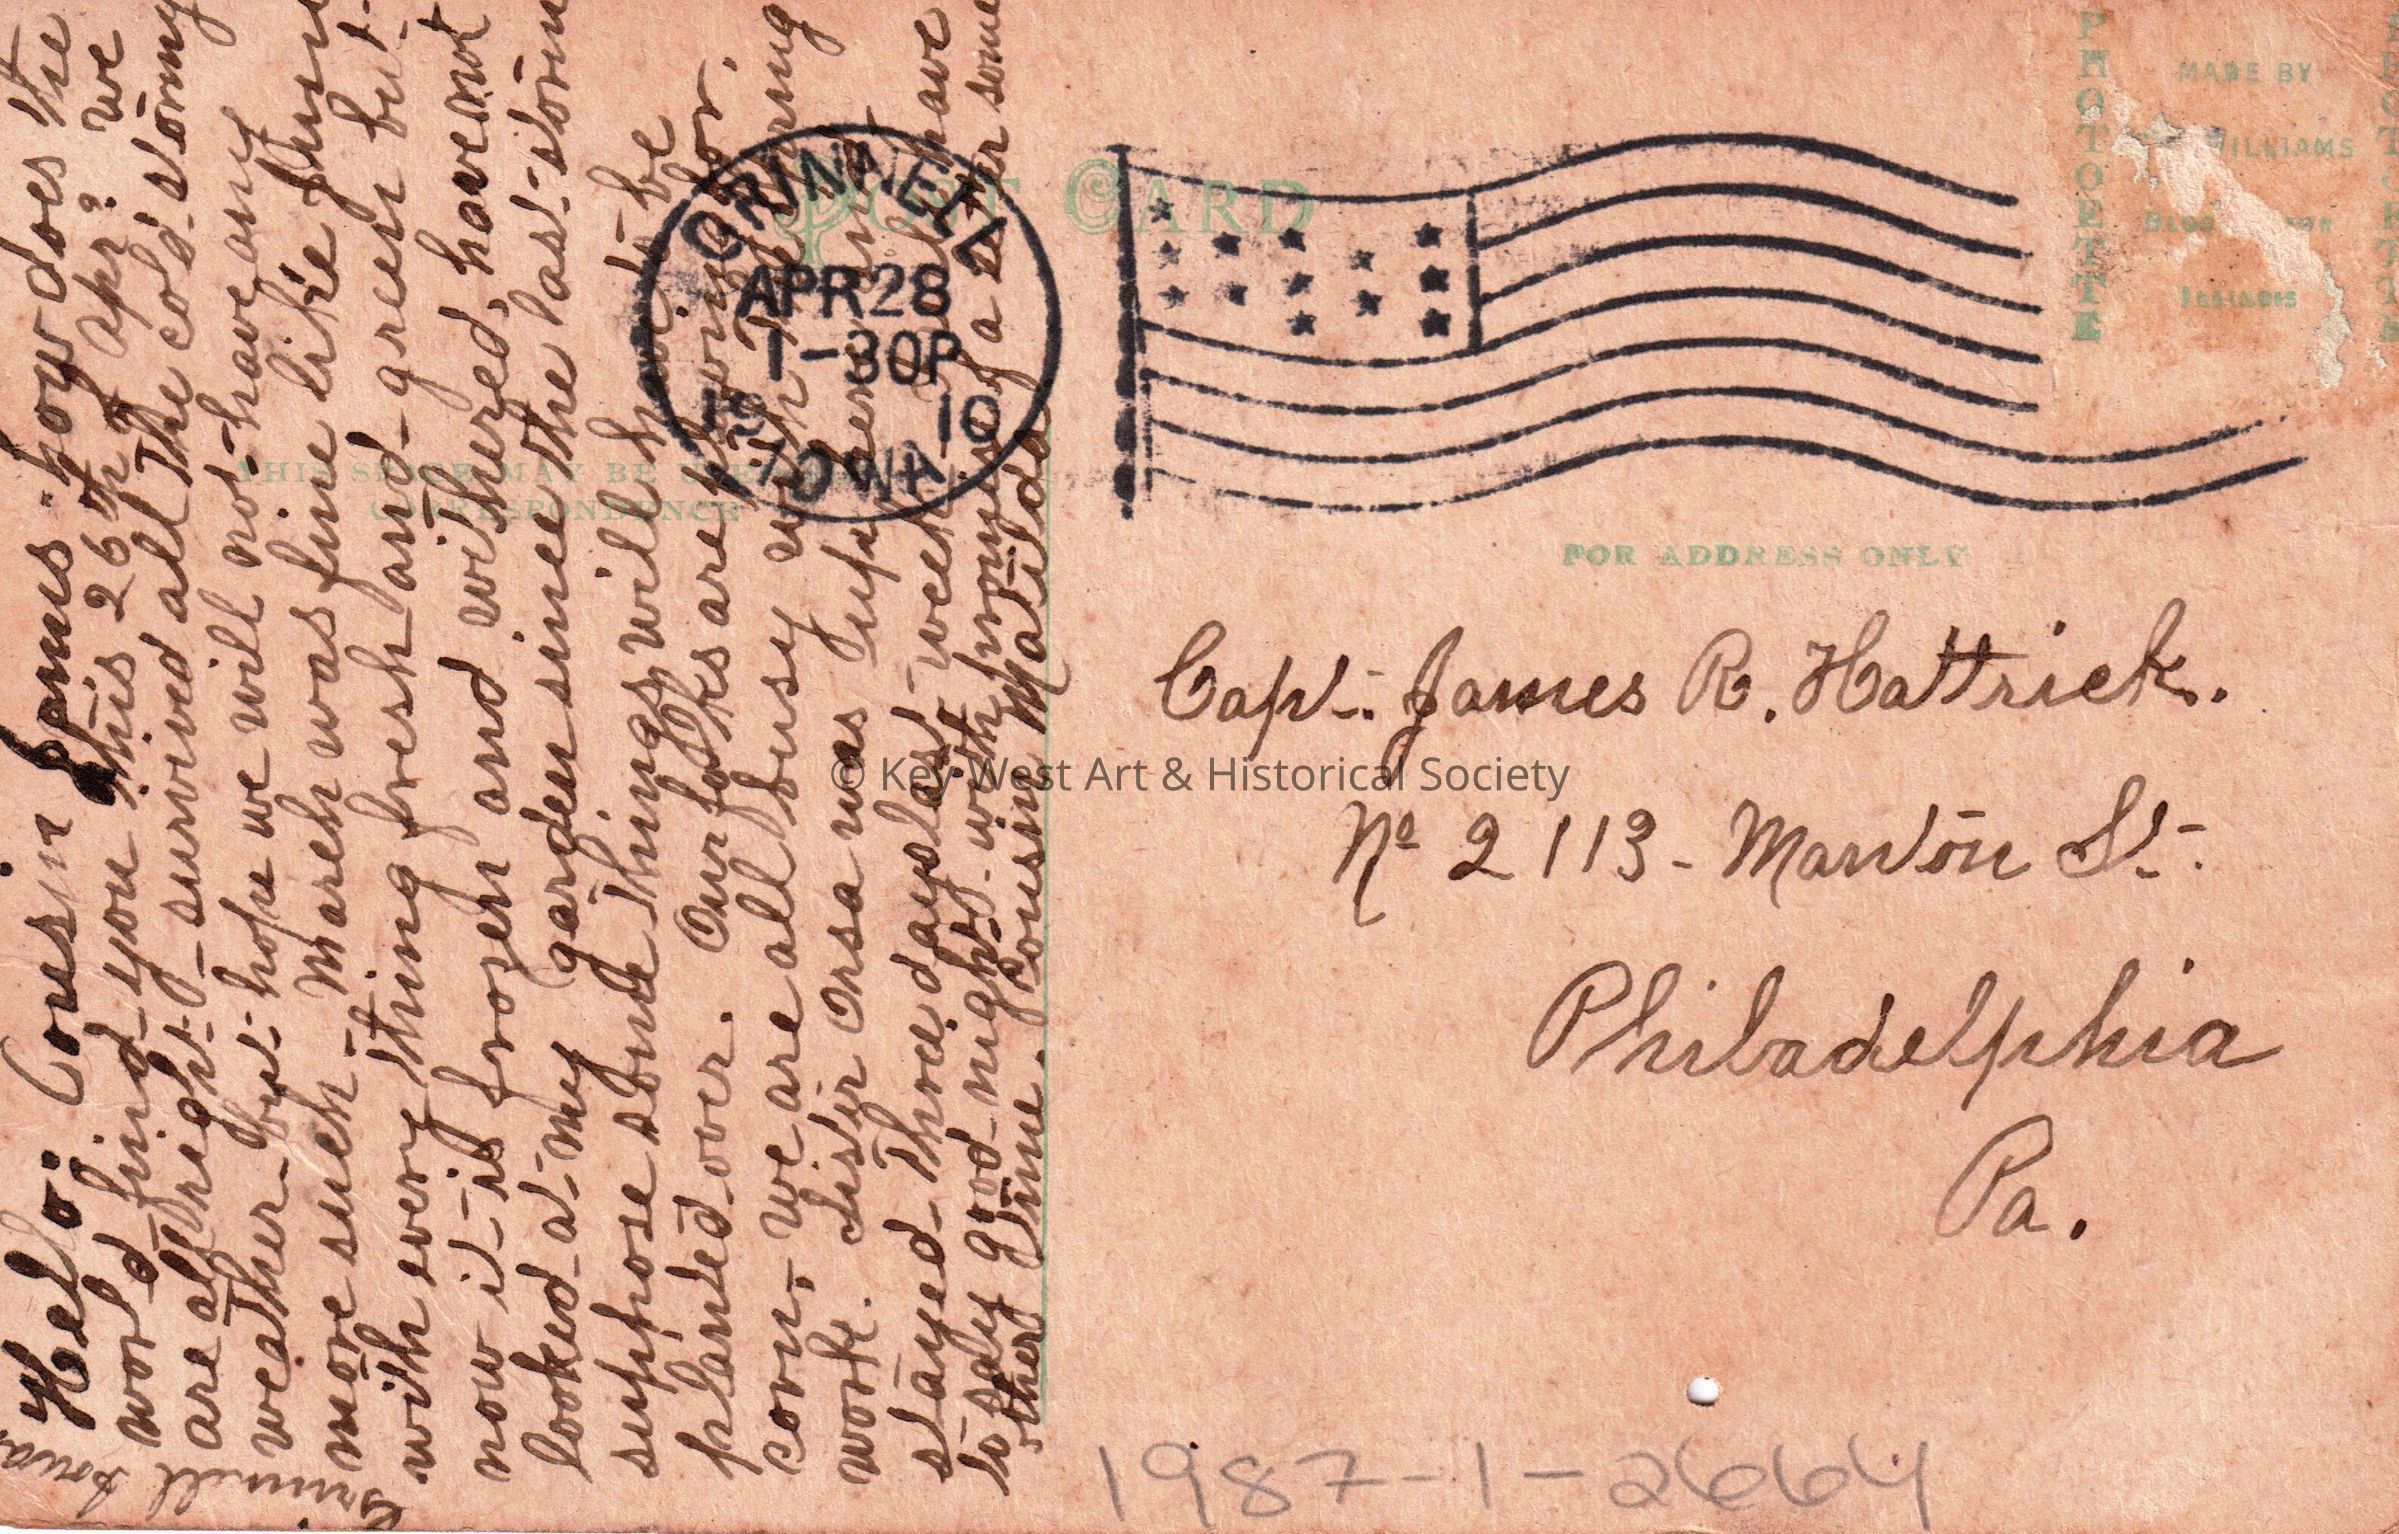 Grinnell Iowa.
Helo: Cousin James - how does the
world find you this 26th Apr? we
are all right - survived all the cold stormy
weather - but hope we will not have any
more such - March was fine like June
with every thing fresh and green but -
now it is frozen and withered, have not
looked at my garden since the last storm
suppose some things will have to be
planted over. Our folks are plowing for
corn, we are all busy with Spring
work. Sister Orsa was up here and
stayed three days last week, will have
to say good night with promise of a letter some
other time. Cousin Matilda
POST CARD
THIS SPACE MAY BE USED FOR
CORRESPONDENCE
GRINNELL
APR 28
1-30P
1910
IOWA
PHOTOETTE
MADE BY
WILLIAMS
ILLINOIS
PHOTOETTE
FOR ADDRESS ONLY
Capt. James R. Hattrick.
No 2113 - Marston St.
Philadelphia
Pa.
© Key West Art & Historical Society
1987-1-2664